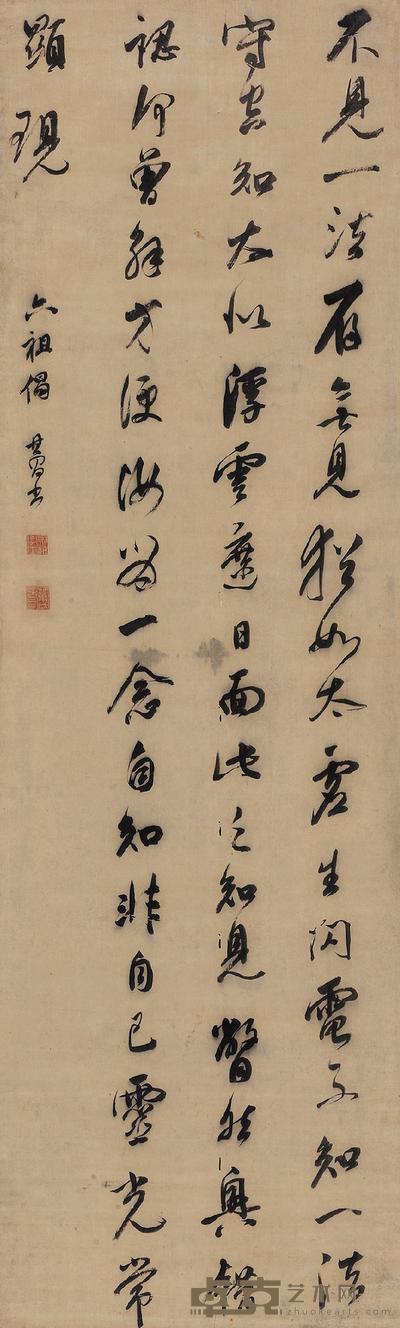 不見一法存無見猶如太虛生閃電不知一法
守空知大似浮雲遮日面此之知見瞥然興錯
認何曾解方便汝當一念自知非自己靈光常
顯現
六祖偈 其昌書
艺术网
zhuokearts.com